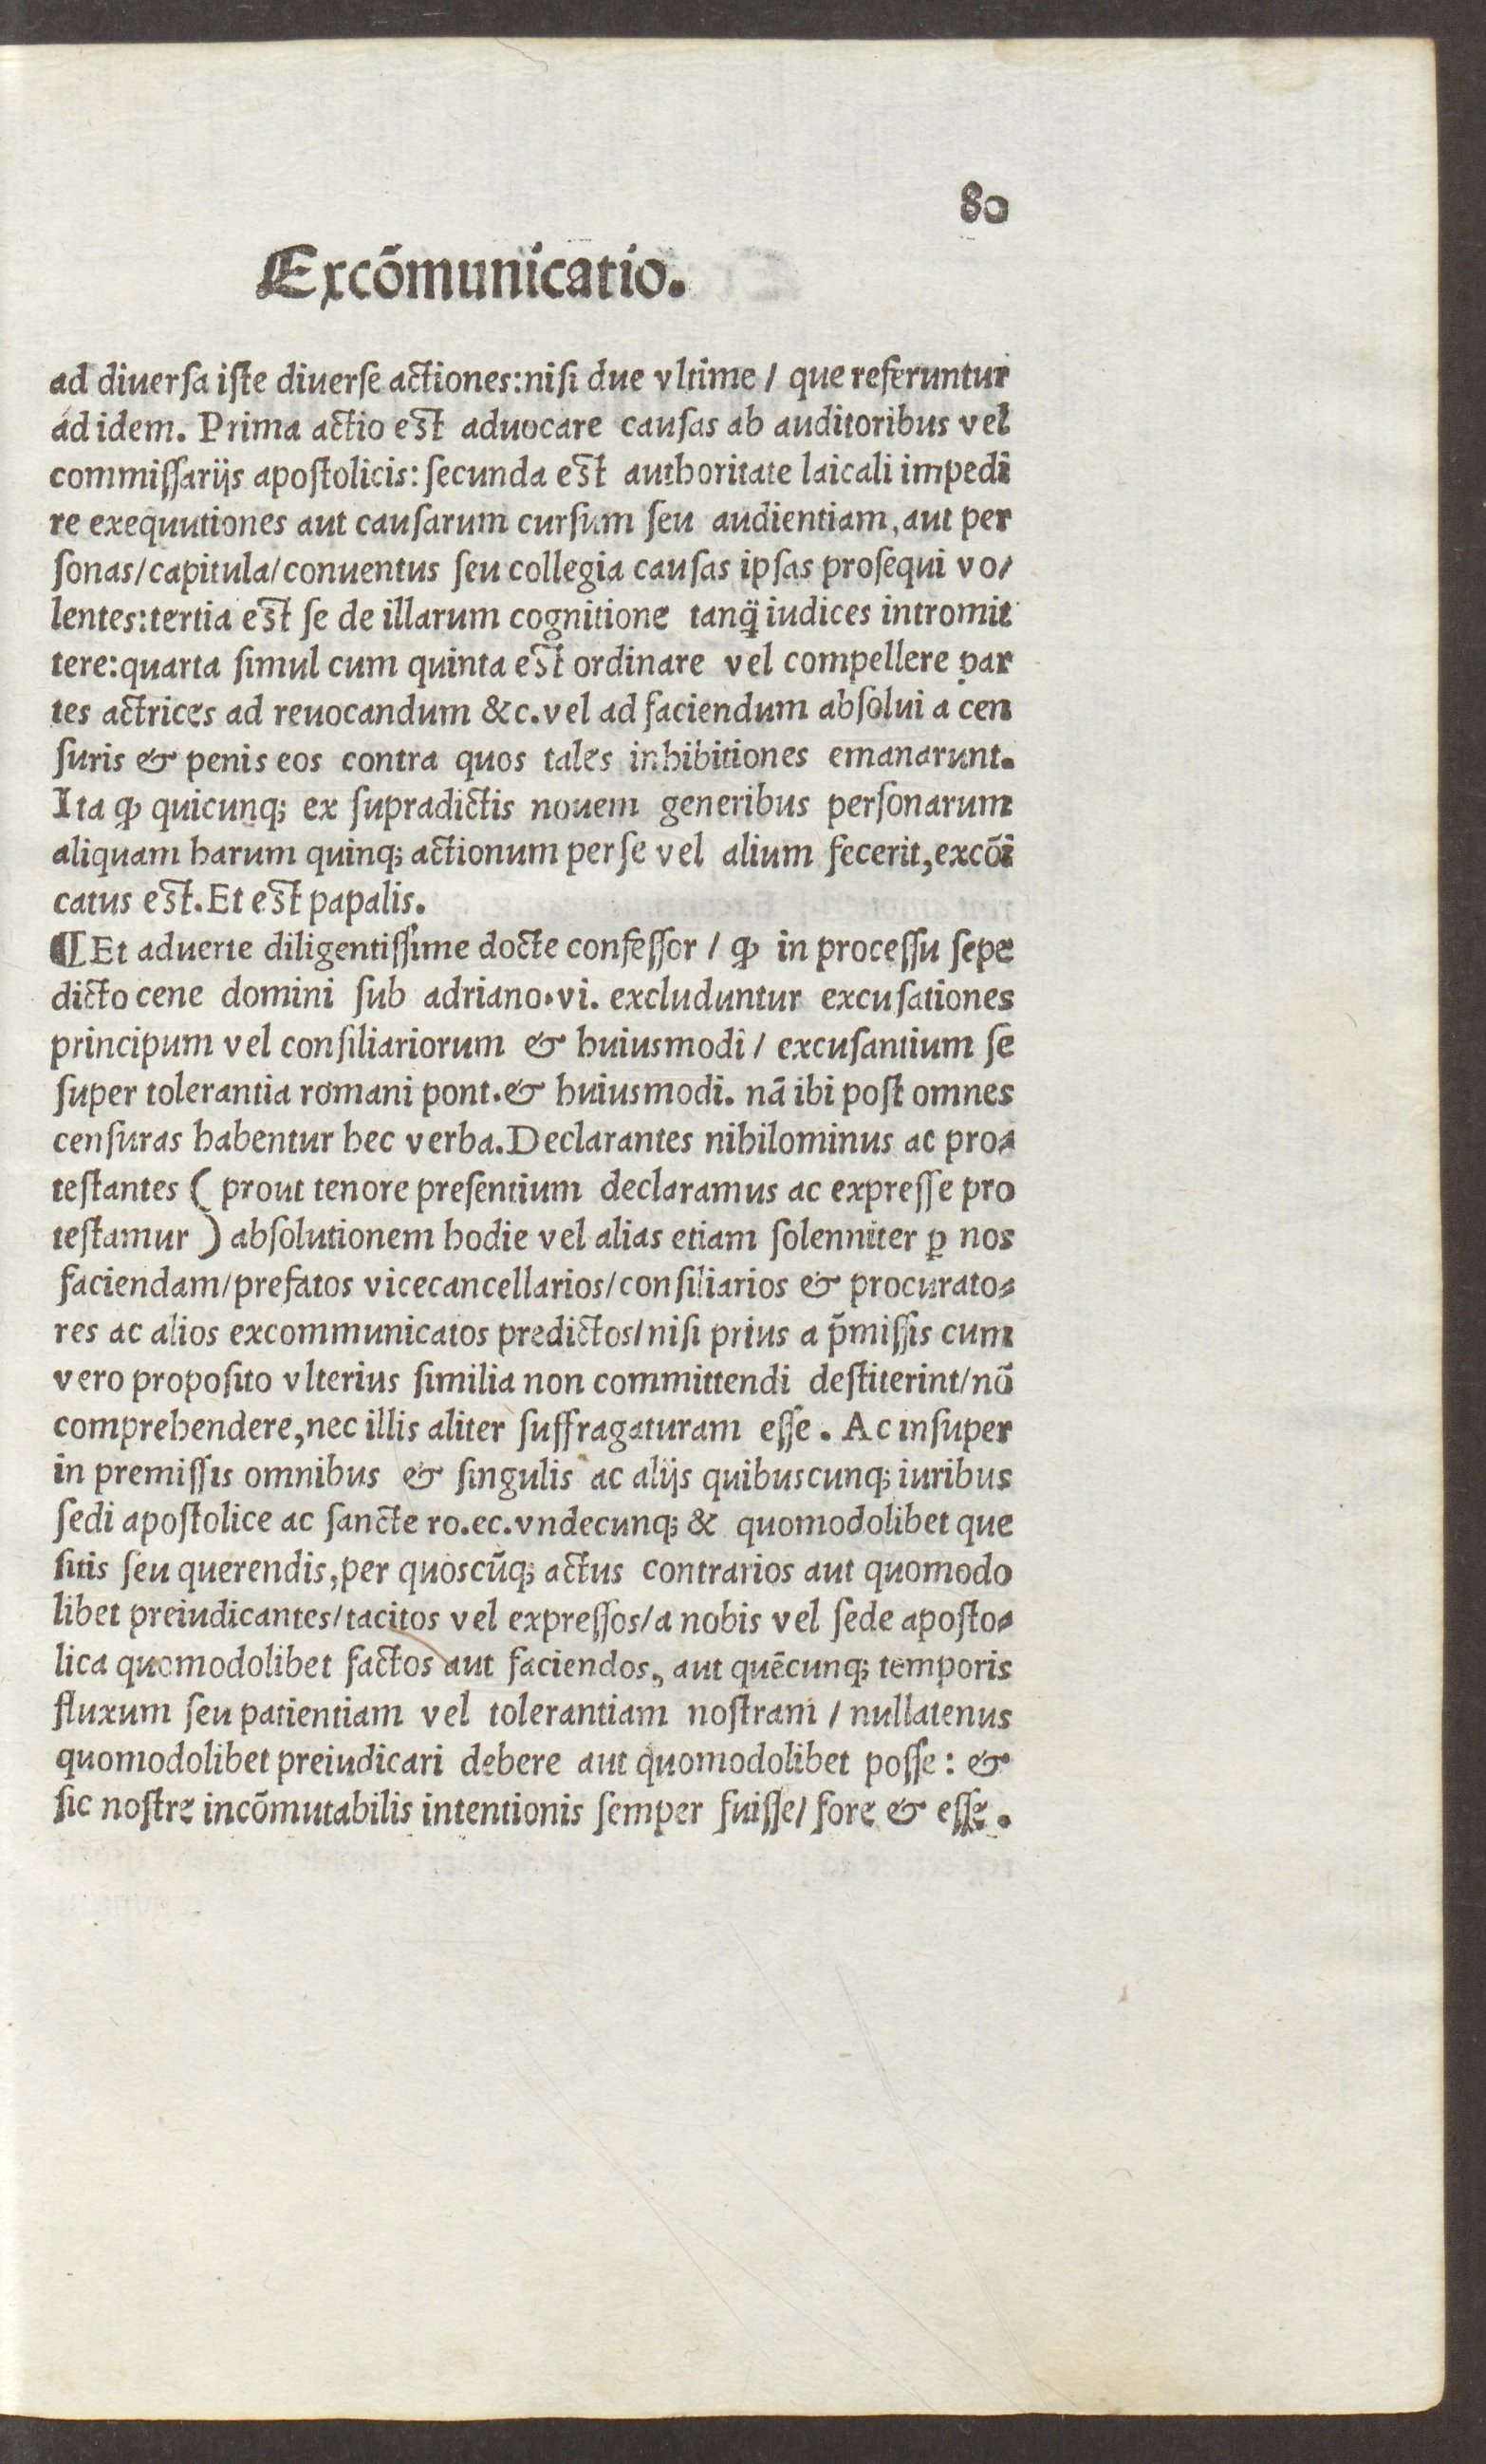 80
Excõmunicatio.
ad diuerſa iſte diuerſe actiones:niſi due vltime / que referuntur
ad idem. Prima actio eſt aduocare cauſas ab auditoribus vel
commiſſarijs apoſtolicis: ſecunda eſt authoritate laicali impedi
re exequutiones aut cauſarum curſum ſeu audientiam, aut per
ſonas/capitula/conuentus ſeu collegia cauſas ipſas proſequi vo/
lentes:tertia eſt ſe de illarum cognitione tanq̃ iudices intromit
tere:quarta ſimul cum quinta eſt ordinare vel compellere par
tes actrices ad reuocandum &c.vel ad faciendum abſolui a cen
ſuris & penis eos contra quos tales inhibitiones emanarunt.
Ita ꝙ quicunq; ex ſupradictis nouem generibus perſonarum
aliquam harum quinq; actionum per ſe vel alium fecerit,excõi
catus eſt. Et eſt papalis.
¶Et aduerte diligentiſſime docte confeſſor / ꝙ in proceſſu ſepe
dicto cene domini ſub adriano.vi. excluduntur excuſationes
principum vel conſiliariorum & huiusmodi / excuſantium ſe
ſuper tolerantia romani pont.& huiusmodi. nã ibi poſt omnes
cenſuras habentur hec verba. Declarantes nihilominus ac pro⸗
teſtantes ( prout tenore preſentium declaramus ac expreſſe pro
teſtamur ) abſolutionem hodie vel alias etiam ſolenniter ꝑ nos
faciendam/prefatos vicecancellarios/conſiliarios & procurato⸗
res ac alios excommunicatos predictos/niſi prius a p̃miſſis cum
vero propoſito vlterius ſimilia non committendi deſtiterint/nõ
comprehendere,nec illis aliter ſuffragaturam eſſe. Ac inſuper
in premiſſis omnibus & ſingulis ac alijs quibuscunq; iuribus
ſedi apoſtolice ac ſancte ro.ec.vndecunq; & quomodolibet que
ſitis ſeu querendis,per quoscũq; actus contrarios aut quomodo
libet preiudicantes/tacitos vel expreſſos/a nobis vel ſede apoſto⸗
lica quomodolibet factos aut faciendos, aut quẽcunq; temporis
fluxum ſeu patientiam vel tolerantiam noſtram / nullatenus
quomodolibet preiudicari debere aut quomodolibet poſſe: &
ſic noſtre incõmutabilis intentionis ſemper fuiſſe/ fore & eſſe.